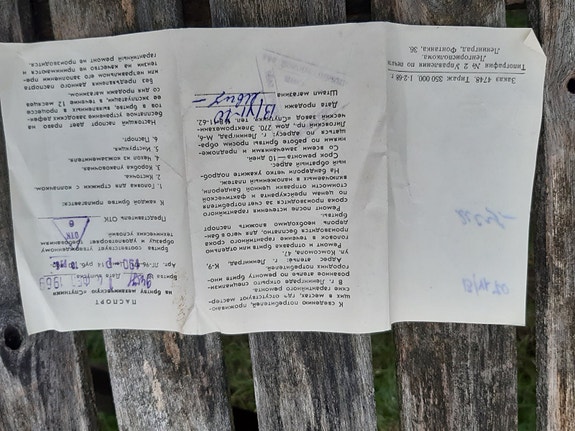 ПАСПОРТ
на бритву механическую «Спутник»
6 ФЕВ 1969
Бритва соответствует утвержденному
образцу и удовлетворяет требованиям
технических условий
Представитель ОТК
ОТК
6
К каждой бритве прилагается:
1. Головка для стрижки с колпачком.
2. Кисточка.
3.
4. Чехол из кожзаменителя.
5. Инструкция.
6. Паспорт.
Настоящий паспорт дает право на
бесплатное устранение заводских дефек-
тов в бритве, выявленных в процессе
ее эксплуатации, в течение 12 месяцев
со дня продажи магазином.
Без предъявления данного паспорта
или неправильном его заполнении пре-
тензии на качество не принимаются и
гарантийный ремонт не производится.
К сведению потребителей, проживаю-
щих в местах, где отсутствуют мастер-
ские гарантийного ремонта.
В г. Ленинграде открыто специализи-
рованное ателье по ремонту бритв ино-
городних потребителей.
Адрес ателье: г. Ленинград, К-9,
ул. Комсомола, 47.
Ремонт и отправка бритв или отдельно
головок в течение гарантийного срока
производится бесплатно, для чего в бан-
дероль необходимо вложить паспорт
бритвы.
Ремонт после истечения гарантийного
срока производится за счет потребителя
по ценам прейскуранта и фактической
стоимости отправки ценной бандероли,
включенных в наложенный платеж.
На бандероли четко укажите подроб-
ный обратный адрес.
Срок ремонта—10 дней.
Со всеми замечаниями и предложе-
ниями по работе бритвы просим обра-
щаться по адресу: г. Ленинград, М-6,
Лиговский пр., дом 270. Электромехани-
ческий завод «Спутник»
Дата продажи
Штамп магазина
Типография № 2 Управления по печати
Ленгорисполкома.
Ленинград, Фонтанка, 36.
Заказ 4748. Тираж 350 000.